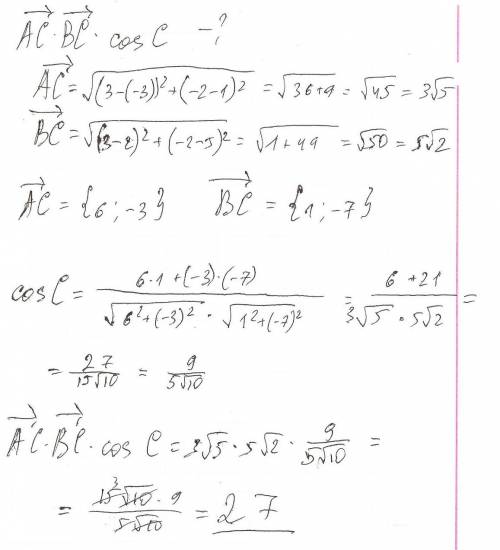 AC⃗ · BC⃗ · cos C - ?
AC⃗ = √((3-(-3))² + (-2-1)²) = √(36+9) = √45 = 3√5
BC⃗ = √((3-2)² + (-2-5)²) = √(1+49) = √50 = 5√2
AC⃗ = {6; -3}   BC⃗ = {1; -7}
cos C = (6·1 + (-3)·(-7)) / (√(6²+(-3)²) · √(1²+(-7)²)) = (6+21) / (3√5 · 5√2) =
= 27 / (15√10) = 9 / (5√10)
AC⃗ · BC⃗ · cos C = 3√5 · 5√2 · 9 / (5√10) =
= (15√10 · 9) / (5√10) = 27